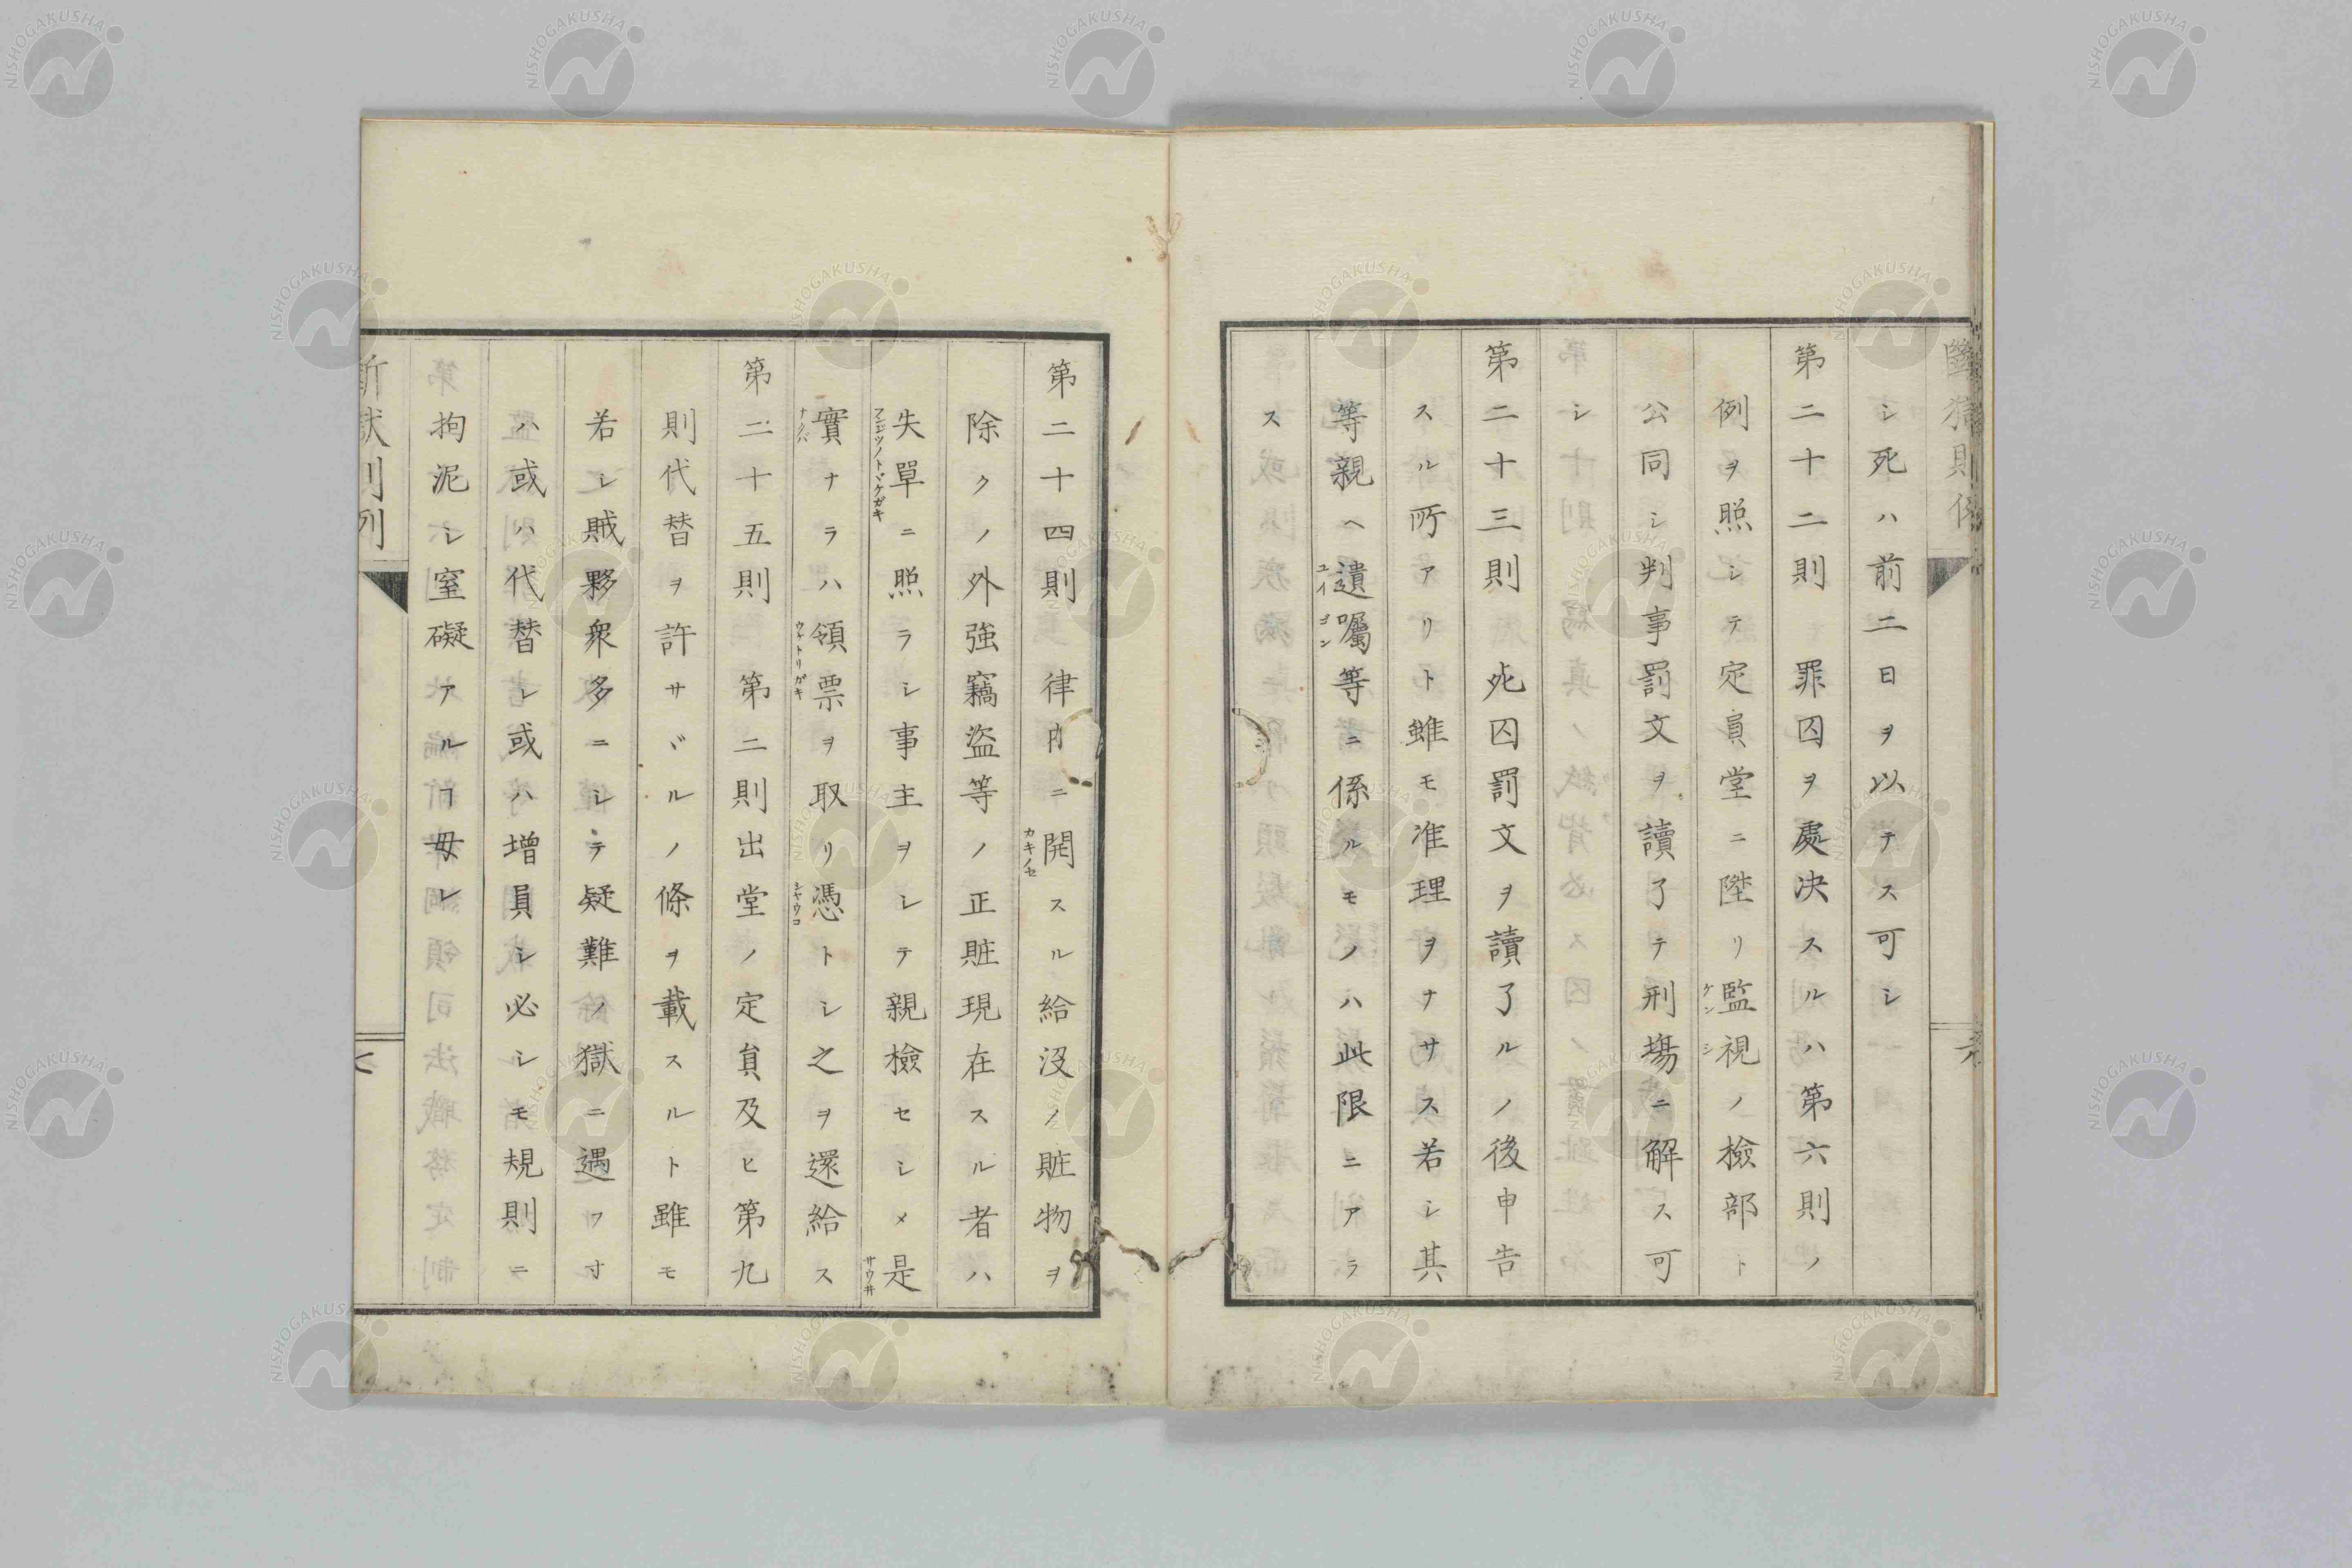 シ死ハ前二日ヲ以テス可シ
第二十二則 罪囚ヲ處决スルハ第六則ノ
例ヲ照シテ定員堂ニ陞リ監視ノ檢部ト
ケンシ
公同シ判事罰文ヲ讀了テ刑塲ニ解ス可
シ
第二十三則 死囚罰文ヲ讀了ルノ後申告
スル所アリト雖モ准理ヲナサス若シ其
等親ヘ遺嘱等ニ係ルモノハ此限ニアラ
ユイゴン
ス
第二十四則 律内ニ開スル給没ノ贓物ヲ
カキノセ
除クノ外強竊盜等ノ正賍現在スル者ハ
失單ニ照ラシ事主ヲシテ親檢セシメ是
フンジツノトドケガキ
サウ井
實ナラハ領票ヲ取リ憑トシ之ヲ還給ス
ナクバ
ウケトリガキ
シヤウコ
第二十五則 第二則出堂ノ定員及ヒ第九
則代替ヲ許サヾルノ條ヲ載スルト雖モ
若シ賊夥衆多ニシテ疑難ノ獄ニ遇フ寸
ハ或ハ代替シ或ハ增員シ必シモ規則ニ
拘泥シ窒礙アルヿ毋レ
NISHOGAKUSHA